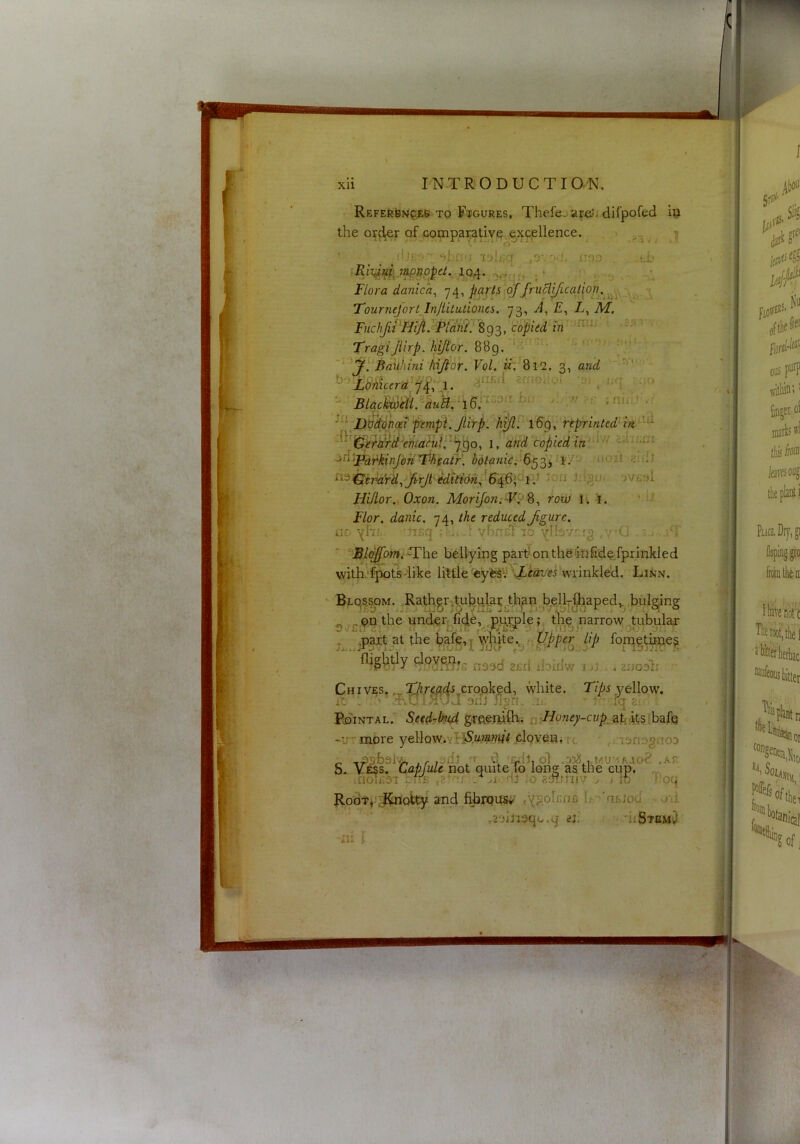 xii INTRODUCTION.
REFERENCES TO FIGURES. Theſe are diſpoſed in
the order of comparative excellence.
Rivini monopet. 104.
Flora danica, 74, parts of fructification.
Tournefort Inſtitutiones. 73, A, E, L, M.
Fuchſii Hiſt. Plant. 893, copied in
Tragi ſtirp. hiſtor. 889.
J. Bauhini hiſtor. Vol. ii. 812. 3, and
Lonicera 74, 1.
Blackwell. auct. 16.
Dodonæi pempt. ſtirp. hiſt. 169, reprinted in
Gerard emacul. 790, 1, and copied in
Parkinſon Theatr. botanic. 653, 1.
Gerard, firſt edition, 646, 1.
Hiſtor. Oxon. Moriſon. V. 8, row 1. 1.
Flor. danic. 74, the reduced figure.
Bloſſom. The bellying part on the inſide ſprinkled
with ſpots like little eyes. Leaves wrinkled. LINN.
BLOSSOM. Rather tubular than bell-ſhaped, bulging
on the under ſide, purple; the narrow tubular
part at the baſe, white. Upper lip ſometimes
ſlightly cloven.
CHIVES. Threads crooked, white. Tips yellow.
POINTAL. Seed-bud greeniſh. Honey-cup at its baſe
more yellow. Summit cloven.
S. VESS. Capſule not quite ſo long as the cup.
ROOT. Knotty and fibrous.
STEM.